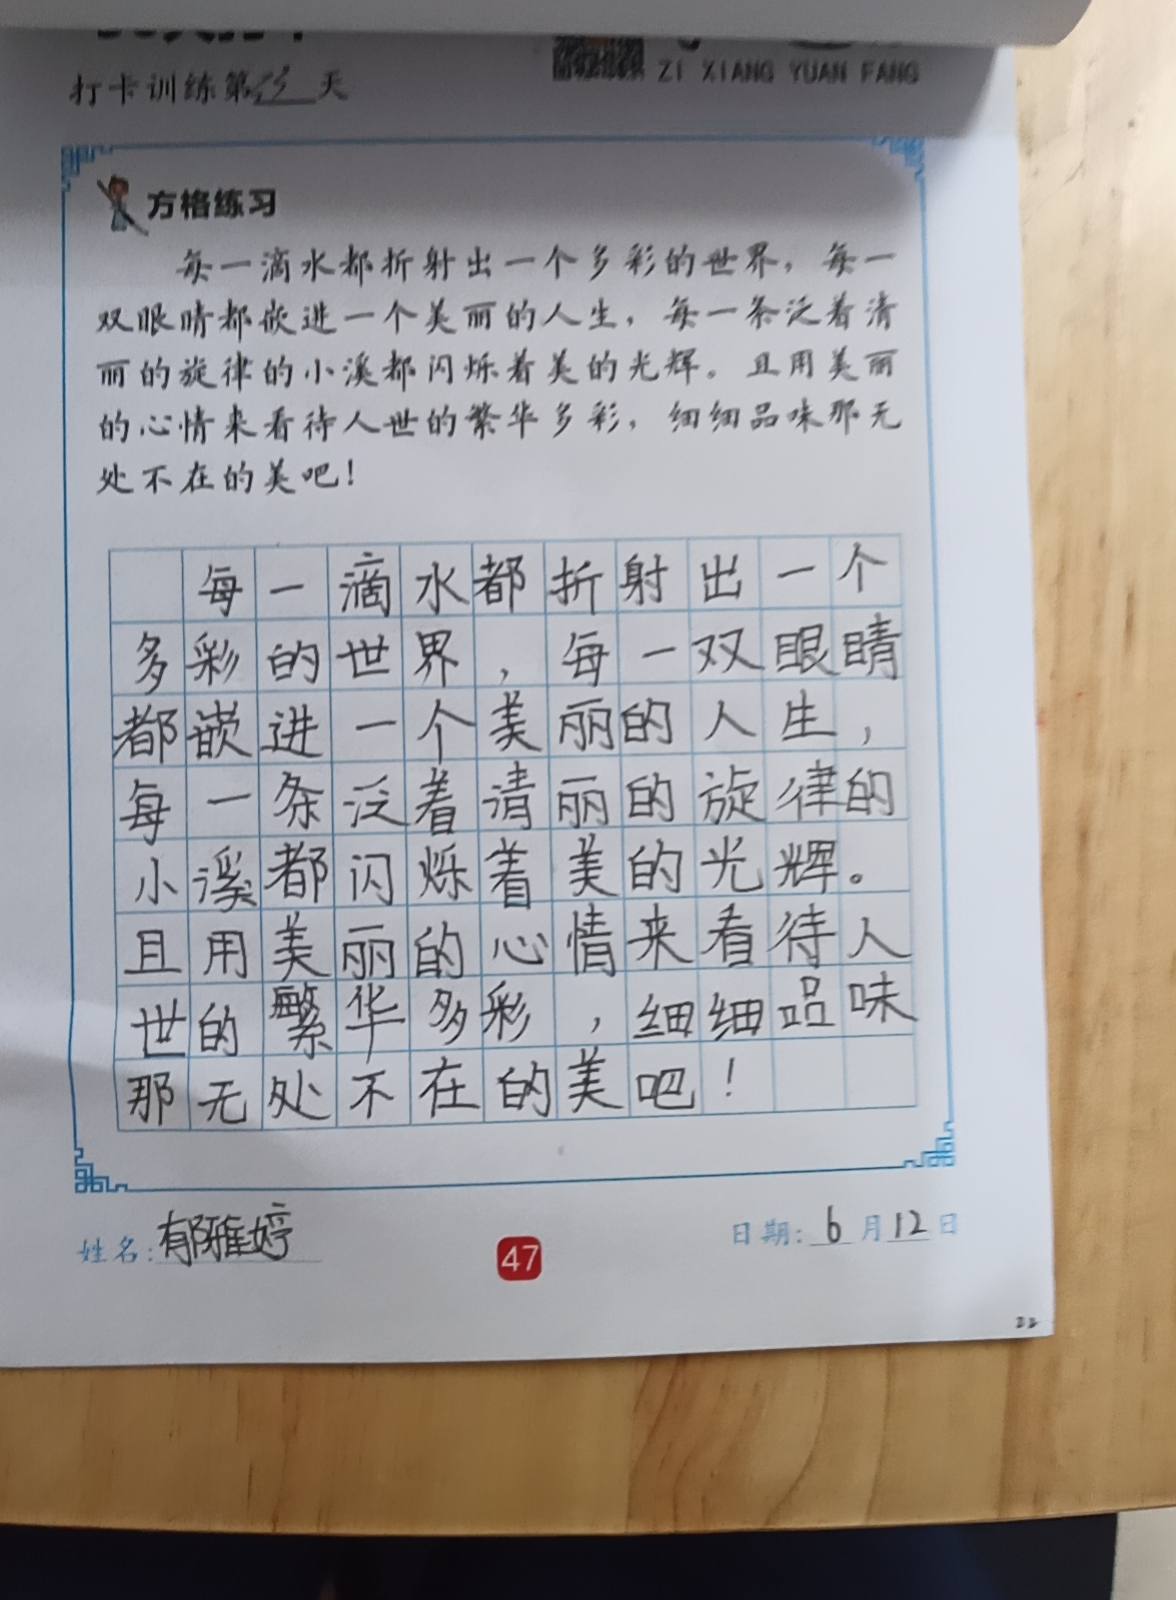 打卡训练第 天
ZI XIANG YUAN FANG
方格练习
每一滴水都折射出一个多彩的世界，每一
双眼睛都嵌进一个美丽的人生，每一条泛着清
丽的旋律的小溪都闪烁着美的光辉。且用美丽
的心情来看待人世的繁华多彩，细细品味那无
处不在的美吧！
每一滴水都折射出一个
多彩的世界，每一双眼睛
都嵌进一个美丽的人生，
每一条泛着清丽的旋律的
小溪都闪烁着美的光辉。
且用美丽的心情来看待人
世的繁华多彩，细细品味
那无处不在的美吧！
姓名：郁雅婷
47
日期：6月12日